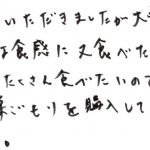 いただきましたが大
食感に又食べた
たくさん食べたいので
巣ごもりを購入して
。